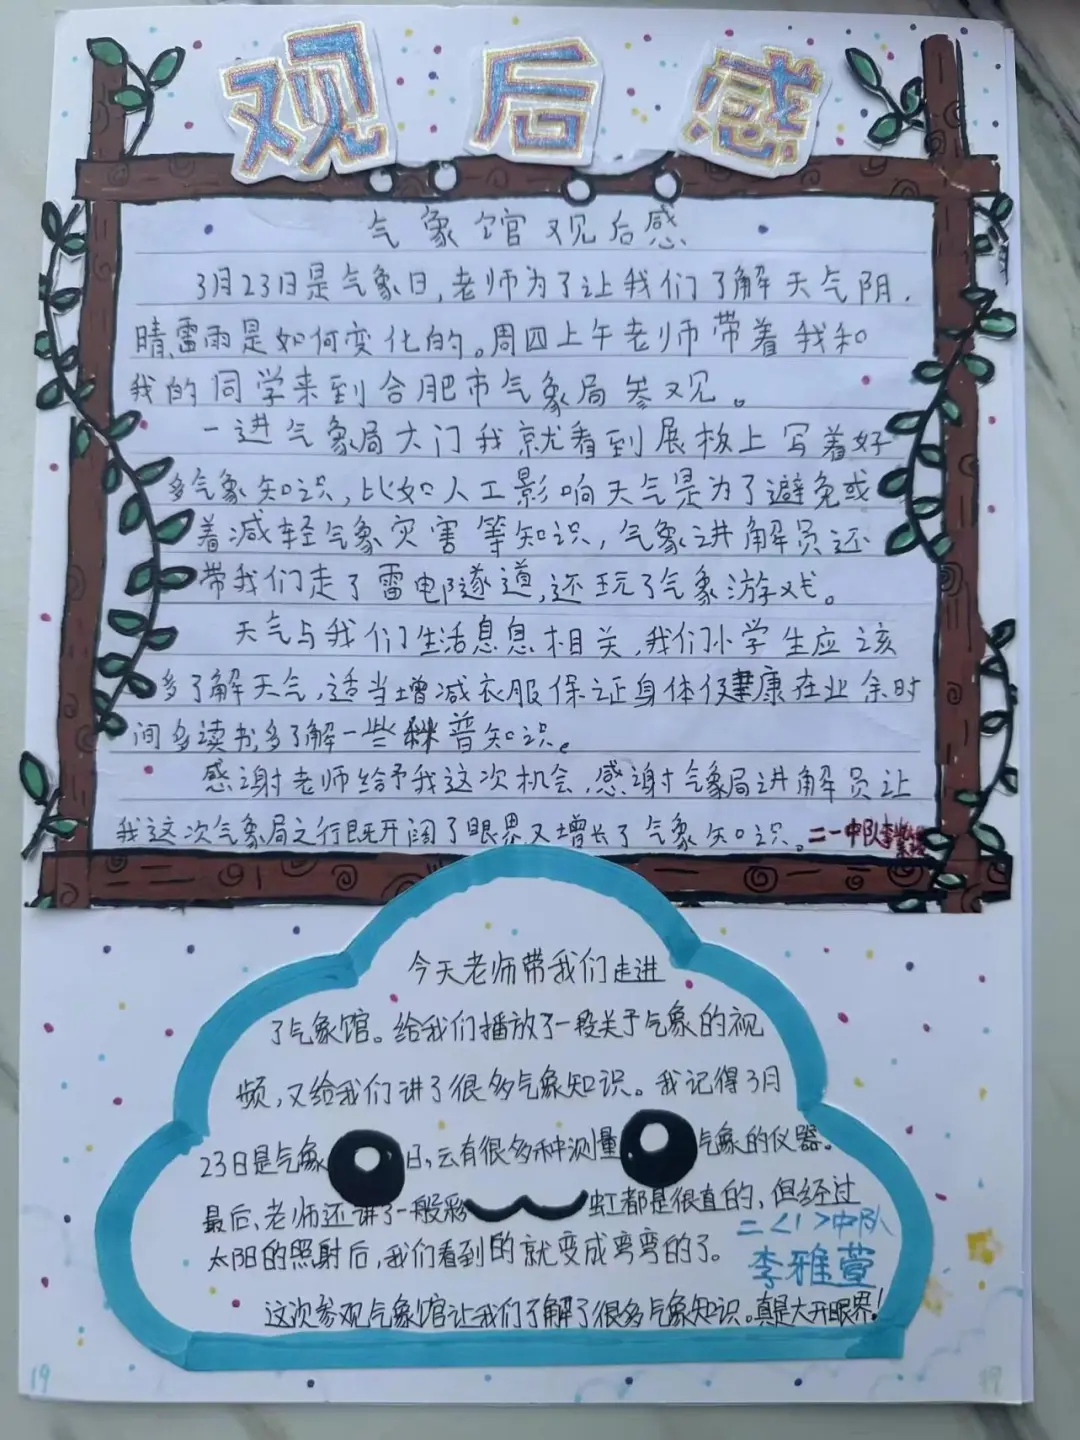 观后感
气象馆观后感
3月23日是气象日,老师为了让我们了解天气阴.
晴雷雨是如何变化的。周四上午老师带着我和
我的同学来到合肥市气象局参观。
一进气象局大门我就看到展板上写着好
多气象知识,比如人工影响天气是为了避免或
着减轻气象灾害等知识,气象讲解员还
带我们走了雷电隧道,还玩了气象游戏。
天气与我们生活息息相关,我们小学生应该
多了解天气,适当增减衣服保证身体健康在业余时
间多读书,多了解一些普知识。
感谢老师给予我这次机会,感谢气象局讲解员让
我这次气象局之行既开阔了眼界又增长了气象知识。二一中队李
今天老师带我们走进
了气象馆。给我们播放了一段关于气象的视
频,又给我们讲了很多气象知识。我记得3月
23日是气象日,云有很多种测量气象的仪器。
最后、老师还讲了一般彩虹都是很直的,但经过
太阳的照射后,我们看到的就变成弯弯的了。
二<1>中队
李雅萱
这次参观气象馆让我们了解了很多气象知识。真是大开眼界!
19